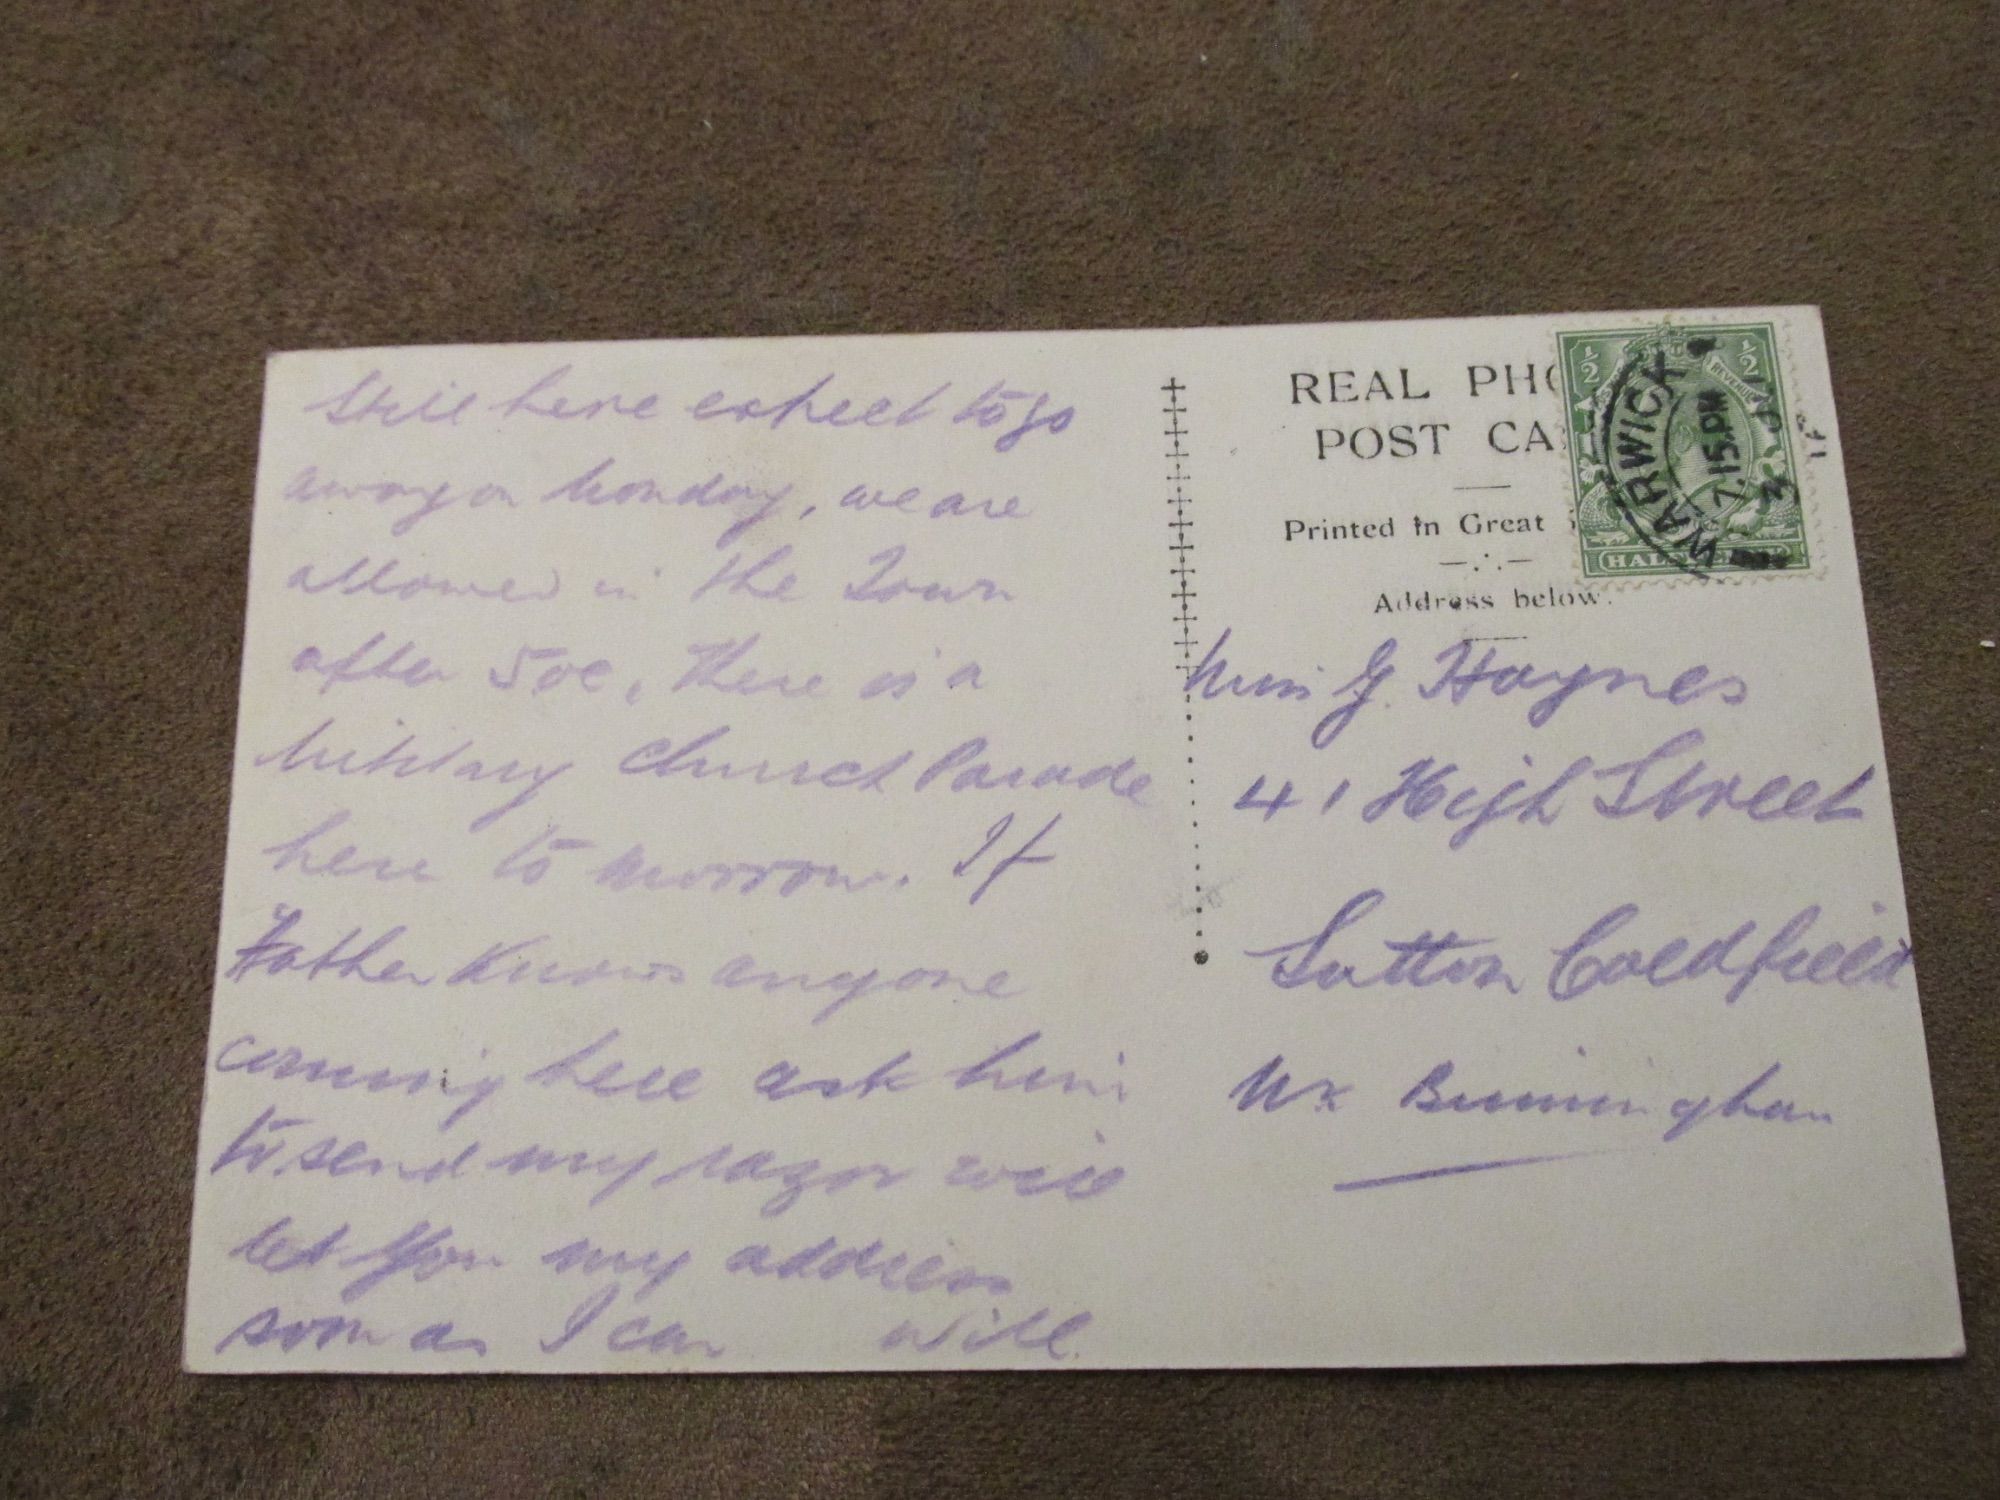 Still here expect to go
away on Monday, we are
allowed in the Town
after 5 oc, There is a
Military Church Parade
here to morrow. If
Father knows anyone
coming here ask him
to send my razor will
let you my address
soon as I can Will.
REAL PHO
POST CA
Printed in Great
Address below.
½ ½
REVENUE
HAL
WARWICK
7.15 PM
Miss G. Haynes
41 High Street
Sutton Coldfield
Nr Birmingham